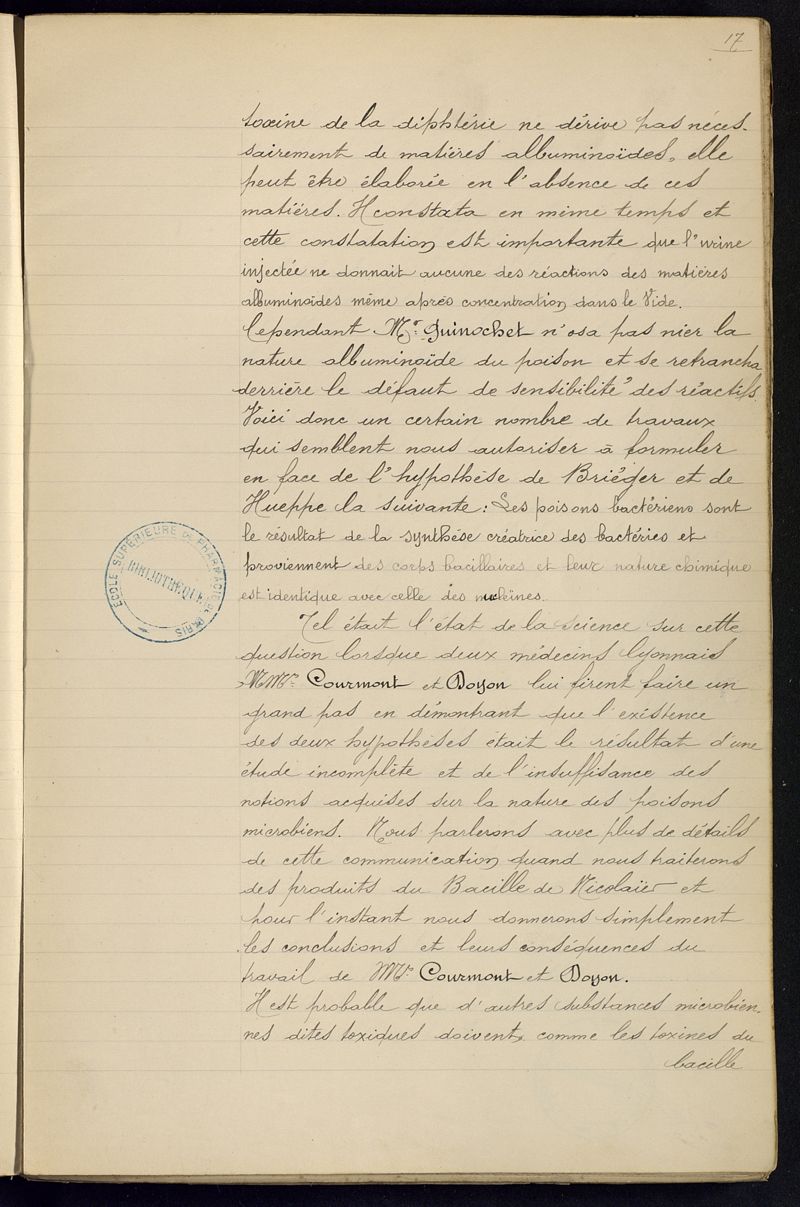 17
toxine de la diphtérie ne dérive pas néces-
sairement de matières albuminoïdes, elle
peut être élaborée en l'absence de ces
matières. Il constata en même temps et
cette constatation est importante que l'urine
injectée ne donnait aucune des réactions des matières
albuminoïdes même après concentration dans le Vide.
Cependant Mr. Guinochet n'osa pas nier la
nature albuminoïde du poison et se retrancha
derrière le défaut de sensibilité des réactifs.
Voici donc un certain nombre de travaux
qui semblent nous autoriser à formuler
en face de l'hypothèse de Briéger et de
Hueppe la suivante: Les poisons bactériens sont
le résultat de la synthèse créatrice des bactéries et
proviennent des corps bacillaires et leur nature chimique
est identique avec celle des nucléines.
Tel était l'état de la science sur cette
question lorsque deux médecins lyonnais
MMrs Courmont et Doyon lui firent faire un
grand pas en démontrant que l'existence
des deux hypothèses était le résultat d'une
étude incomplète et de l'insuffisance des
notions acquises sur la nature des poisons
microbiens. Nous parlerons avec plus de détails
de cette communication quand nous traiterons
des produits du Bacille de Nicolaïer et
pour l'instant nous donnerons simplement
les conclusions et leurs conséquences du
travail de MMrs Courmont et Doyon.
Il est probable que d'autres substances microbien-
nes dites toxiques doivent comme les toxines du
bacille
ÉCOLE SUPÉRIEURE DE PHARMACIE DE PARIS
BIBLIOTHÈQUE